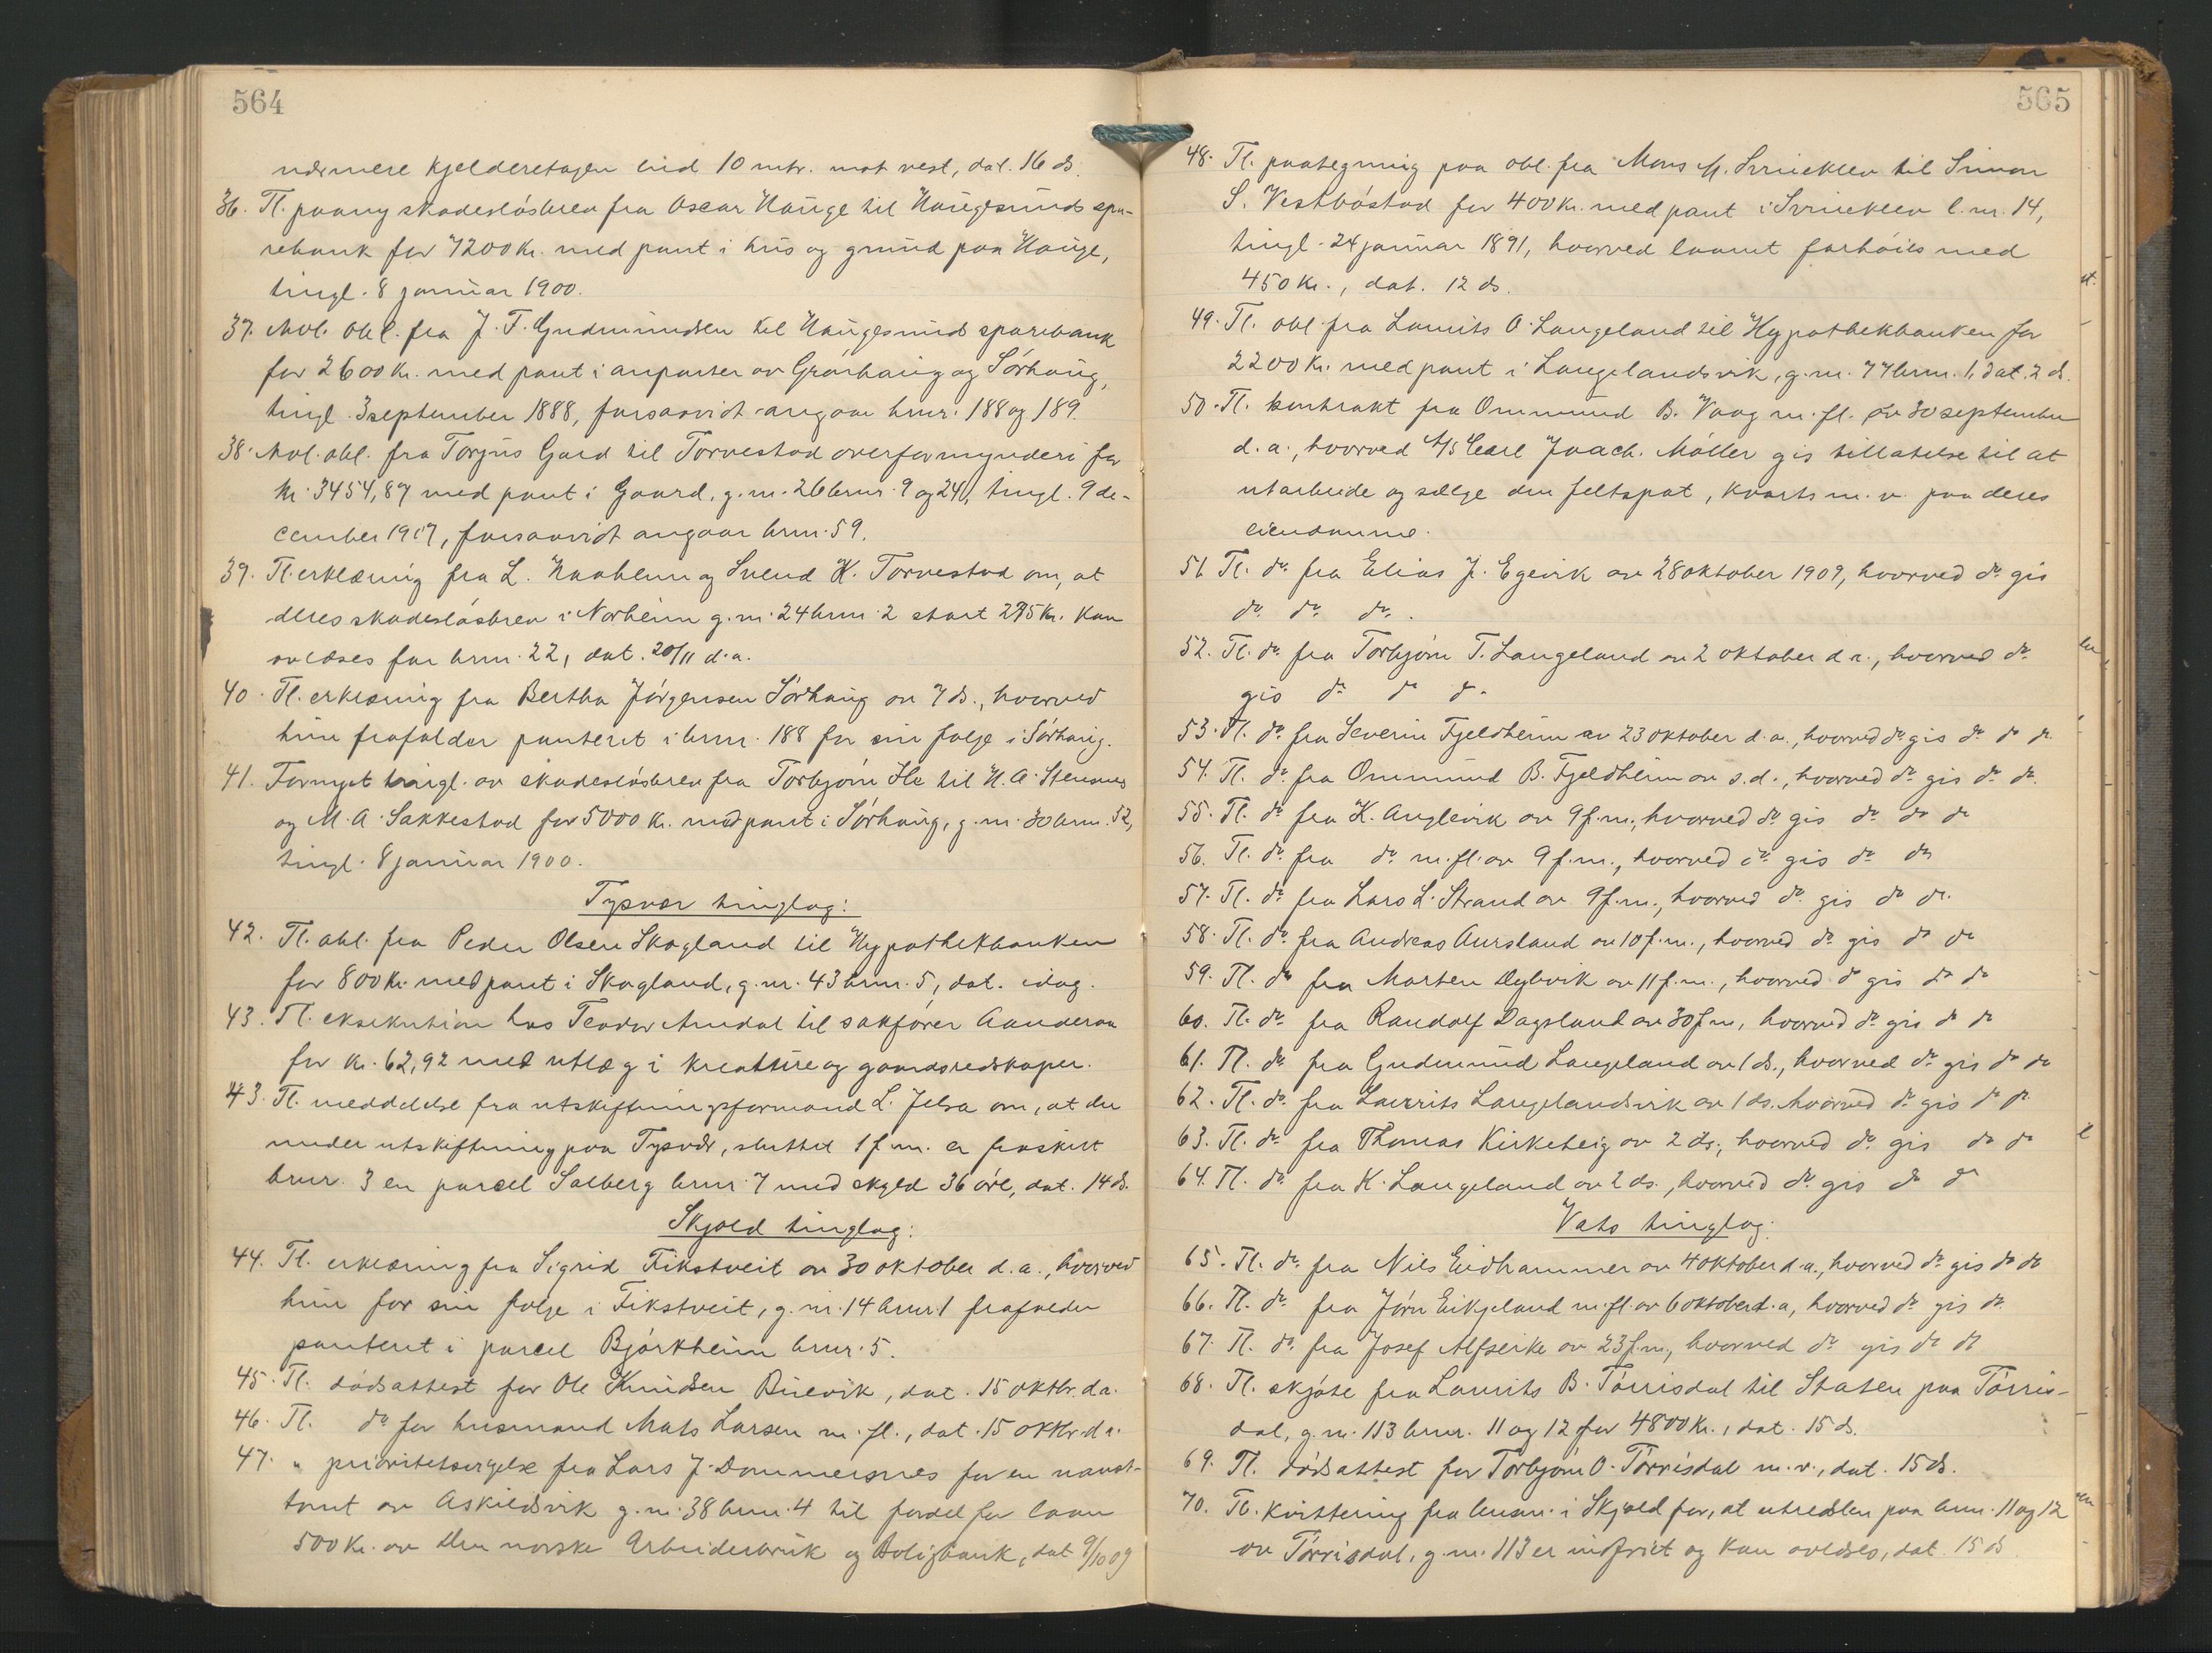 564
nærmere Kjelderetagen end 10 mtr. mot vest, dat. 16 ds.
36. Tl. paany skadesløsbrev fra Oscar Hauge til Haugesunds spa-
rebank for 7200 Kr. med pant i hus og grund paa Hauge,
tingl. 8 januar 1900.
37. Avl. obl. fra J. T. Gudmundsen til Haugesunds sparebank
for 2600 Kr. med pant i anparter av Grørhaug og Sørhaug,
tingl. 3 september 1888, forsaavidt angaar brnr. 188 og 189.
38. Avl. obl. fra Torjus Gard til Torvestad overformynderi for
kr. 3454,87 med pant i Gaard, g. nr. 26 brnr. 9 og 24, tingl. 9 de-
cember 1907, forsaavidt angaar brnr. 59.
39. Tl. erklæring fra L. Naaheim og Svend K. Torvestad om, at
deres skadesløsbrev i Norheim g. nr. 24 brnr. 2 stort 275 Kr. kan
avlæses for brnr. 22, dat. 20/11 d. a.
40. Tl. erklæring fra Bertha Jørgensen Sørhaug av 7 ds., hvorved
hun frafalder panteret i brnr. 188 for sin følge i Sørhaug.
41. Fornyet tingl. av skadesløsbrev fra Torbjørn Hle til N. A. Stensnes
og M. A. Sakkestad for 5000 Kr. med pant i Sørhaug, g. nr. 30 brnr. 52,
tingl. 8 januar 1900.
Tysvær tinglag:
42. Tl. obl. fra Peder Olsen Skogland til Hypothekbanken
for 800 Kr. med pant i Skogland, g. nr. 43 brnr. 5, dat. idag.
43. Tl. eksekution hos Teodor Amdal til sakfører Aanderaa
for kr. 62,92 med utlæg i kreature og gaardsredskaper.
43. Tl. meddelelse fra utskiftningsformand L. Jelsa om, at der
under utskiftning paa Tysvær, sluttet 1 f. m. er fraskilt
brnr. 3 en parcel Solberg brnr. 7 med skyld 36 øre, dat. 14 ds.
Skjold tinglag:
44. Tl. erklæring fra Sigrid Fikstveit av 30 oktober d. a., hvorved
hun for sin følge i Fikstveit, g. nr. 14 brnr. 1 frafalder
panteret i parcel Bjørkheim brnr. 5.
45. Tl. dødsattest for Ole Knudsen Buevik, dat. 15 oktbr. d. a.
46. Tl. do for husmand Mats Larsen m. fl., dat. 15 oktbr. d. a.
47. " prioritetsvigelse fra Lars J. Dommersnes for en naust-
tomt av Askildsvik g. nr. 38 brnr. 4 til fordel for laan
500 Kr. av Den norske Arbeiderbruk og Boligbank, dat. 9/10 09
565
48. Tl. paategning paa obl. fra Mons M. til Simon
S. Vestbøstad for 400 Kr. med pant i l. nr. 14,
tingl. 24 januar 1891, hvorved laanet forhøies med
450 Kr., dat. 12 ds.
49. Tl. obl. fra Laurits O. Langeland til Hypothekbanken for
2200 Kr. med pant i Langelandsvik, g. nr. 77 brnr. 1, dat. 2 ds.
50. Tl. kontrakt fra Ommund B. Vaag m. fl. av 30 september
d. a., hvorved A/S Carl Joach. Møller gis tillatelse til at
utarbeide og sælge den feltspat, kvarts m. v. paa deres
eiendomme.
51. Tl. do fra Elias J. Egevik av 28 oktober 1909, hvorved do gis
do do do.
52. Tl. do fra Torbjørn T. Langeland av 2 oktober d. a., hvorved do
gis do do do
53. Tl. do fra Severin Fjeldheim av 23 oktober d. a., hvorved do gis do do do
54. Tl. do fra Ommund B. Fjeldheim av s. d., hvorved do gis do do.
55. Tl. do fra K. Anglevik av 9 f. m., hvorved do gis do do do
56. Tl. do fra do m. fl. av 9 f. m., hvorved do gis do do
57. Tl. do fra Lars L. Strand av 9 f. m., hvorved do gis do do.
58. Tl. do fra Andreas Aursland av 10 f. m., hvorved do gis do do
59. Tl. do fra Morten Dybvik av 11 f. m., hvorved do gis do do
60. Tl. do fra Randolf Dagsland av 30 f. m, hvorved do gis do do
61. Tl. do fra Gudmund Langeland av 1 ds., hvorved do gis do do
62. Tl. do fra Laurits Langelandsvik av 1 ds. hvorved do gis do do
63. Tl. do fra Thomas Kirketeig av 2 ds., hvorved do gis do do
64. Tl. do fra K. Langeland av 2 ds., hvorved do gis do do
Vats tinglag:
65. Tl. do fra Nils Eidhammer av 4 oktober d. a., hvorved do gis do do
66. Tl. do fra Jørn Eikjeland m. fl. av 6 oktober d. a, hvorved do gis do.
67. Tl. do fra Josef Alfseike av 23 f. m., hvorved do gis do do
68. Tl. skjøte fra Laurits B. Tørrisdal til Staten paa Tørris-
dal, g. nr. 113 brnr. 11 og 12 for 4800 Kr., dat. 15 ds.
69. Tl. dødsattest for Torbjørn O. Tørrisdal m. v., dat. 15 ds.
70. Tl. kvittering fra lensm. i Skjold for, at utredslen paa brnr. 11 og 12
av Tørrisdal, g. nr. 113 er indfriet og kan avlæses, dat. 15 ds